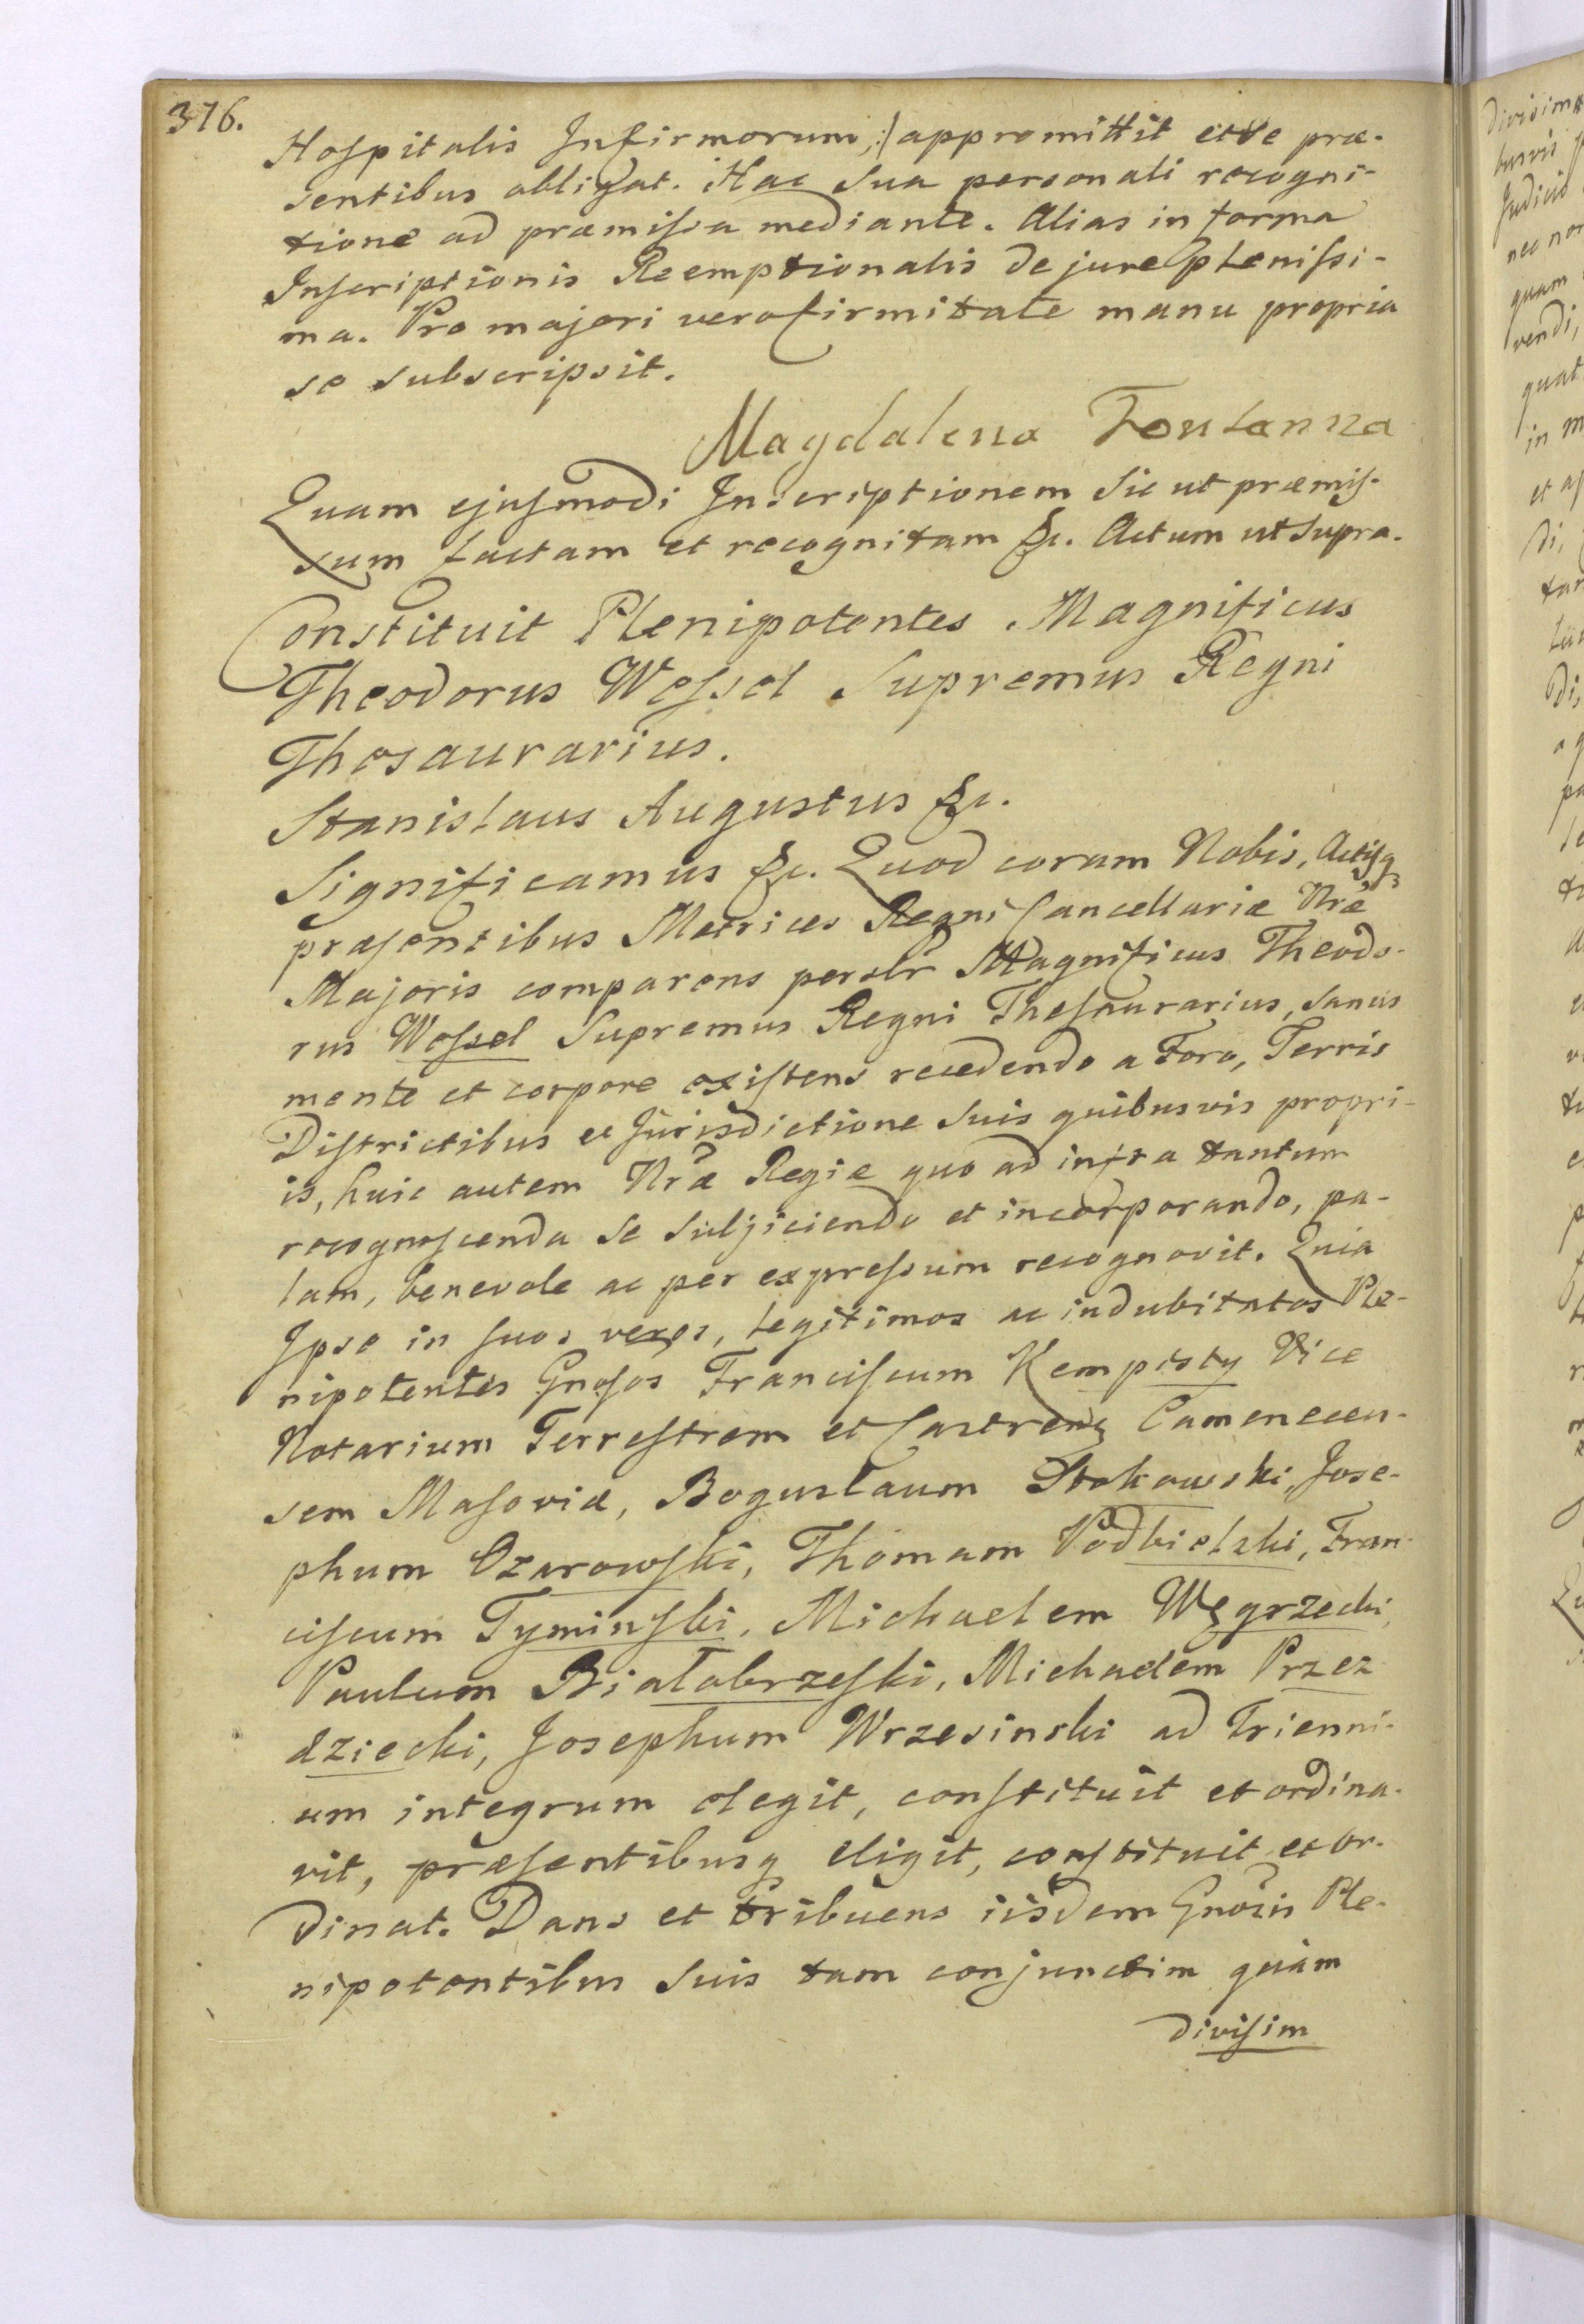 376.
Hospitalis Infirmorum,:/ appromittit et se præ-
sentibus obligat. Hac sua personali recogni-
tione ad præmissa mediante. Alias in forma
Inscriptionis Reemptionalis de jure plenissi-
ma. Pro majori vero firmitate manu propria
se subscripsit.
Magdalena Fontanna
Quam ejusmodi Inscriptionem sic ut præmis-
sum factam et recognitam &c. Actum ut supra.
Constituit Plenipotentes Magnificus
Theodorus Wessel Supremus Regni
Thesaurarius.
Stanislaus Augustus &c.
Significamus &c. Quod coram Nobis, Actisq
præsentibus Metrices Regni Cancellariæ Nræ
Majoris comparens persolr Magnificus Theodo-
rus Wessel Supremus Regni Thesaurarius, sanus
mente et corpore existens recedendo a Foro, Terris
Districtibus et Jurisdictione suis quibusvis propri-
is, huic autem Nræ Regiæ quo ad infra tantum
recognoscenda se subjiciendo et incorporando, pa-
lam, benevole ac per expressum recognovit. Quia
Ipse in suos veros, legitimos ac indubitatos Ple-
nipotentes Gnosos Franciscum Kempisty Vice
Notarium Terrestrem et Castrens Camenecen-
sem Masoviæ, Boguslaum Stokowski, Jose-
phum Ozarowski, Thomam Podbielski, Fran-
ciscum Tyminski, Michaelem Węgrzecki,
Paulum Białobrzeski, Michaelem Przez
dziecki, Josephum Wrzesinski ad trienni-
um integrum elegit, constituit et ordina-
vit, præsentibusq eligit, constituit et or-
dinat. Dans et tribuens iisdem Gnosis Ple-
nipotentibus suis tam conjunctim quàm
divisim